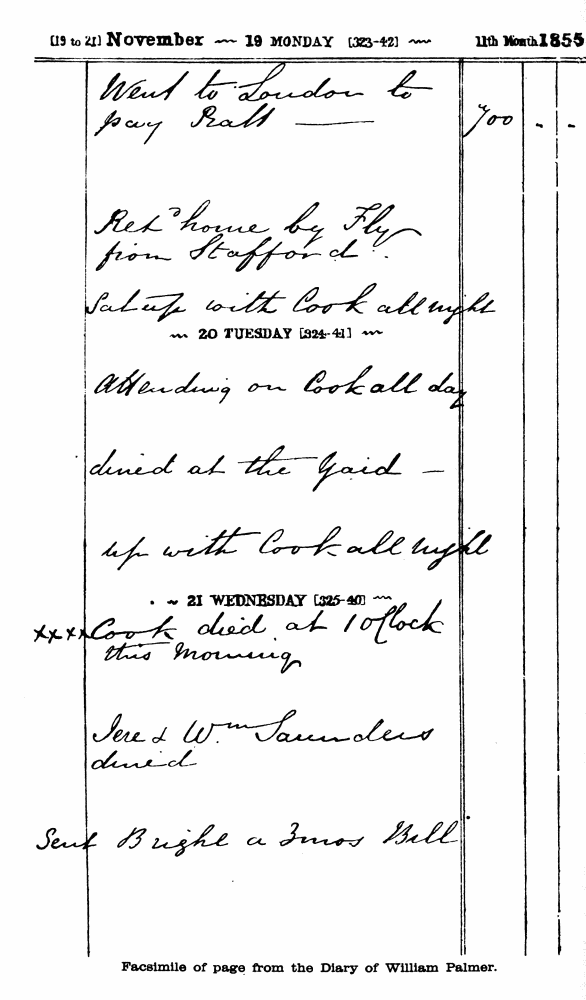 [19 to 21] November ~~ 19 MONDAY [323-42] ~~ 11th Month 1855
Went to London to
pay Pratt — 700 . .
Retd home by Fly
from Stafford .
Sat up with Cook all night
~~ 20 TUESDAY [324-41] ~~
Attending on Cook all day
dined at the Yard —
up with Cook all night
~ 21 WEDNESDAY [325-40] ~~
xxxx Cook died at 1 oClock
this Morning
Jere & Wm Saunders
dined
Sent Bright a 3mos Bill
Facsimile of page from the Diary of William Palmer.